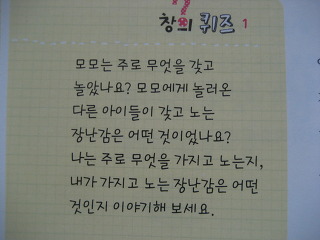 창의 퀴즈 1
모모는 주로 무엇을 갖고
놀았나요? 모모에게 놀러온
다른 아이들이 갖고 노는
장난감은 어떤 것이었나요?
나는 주로 무엇을 가지고 노는지,
내가 가지고 노는 장난감은 어떤
것인지 이야기해 보세요.